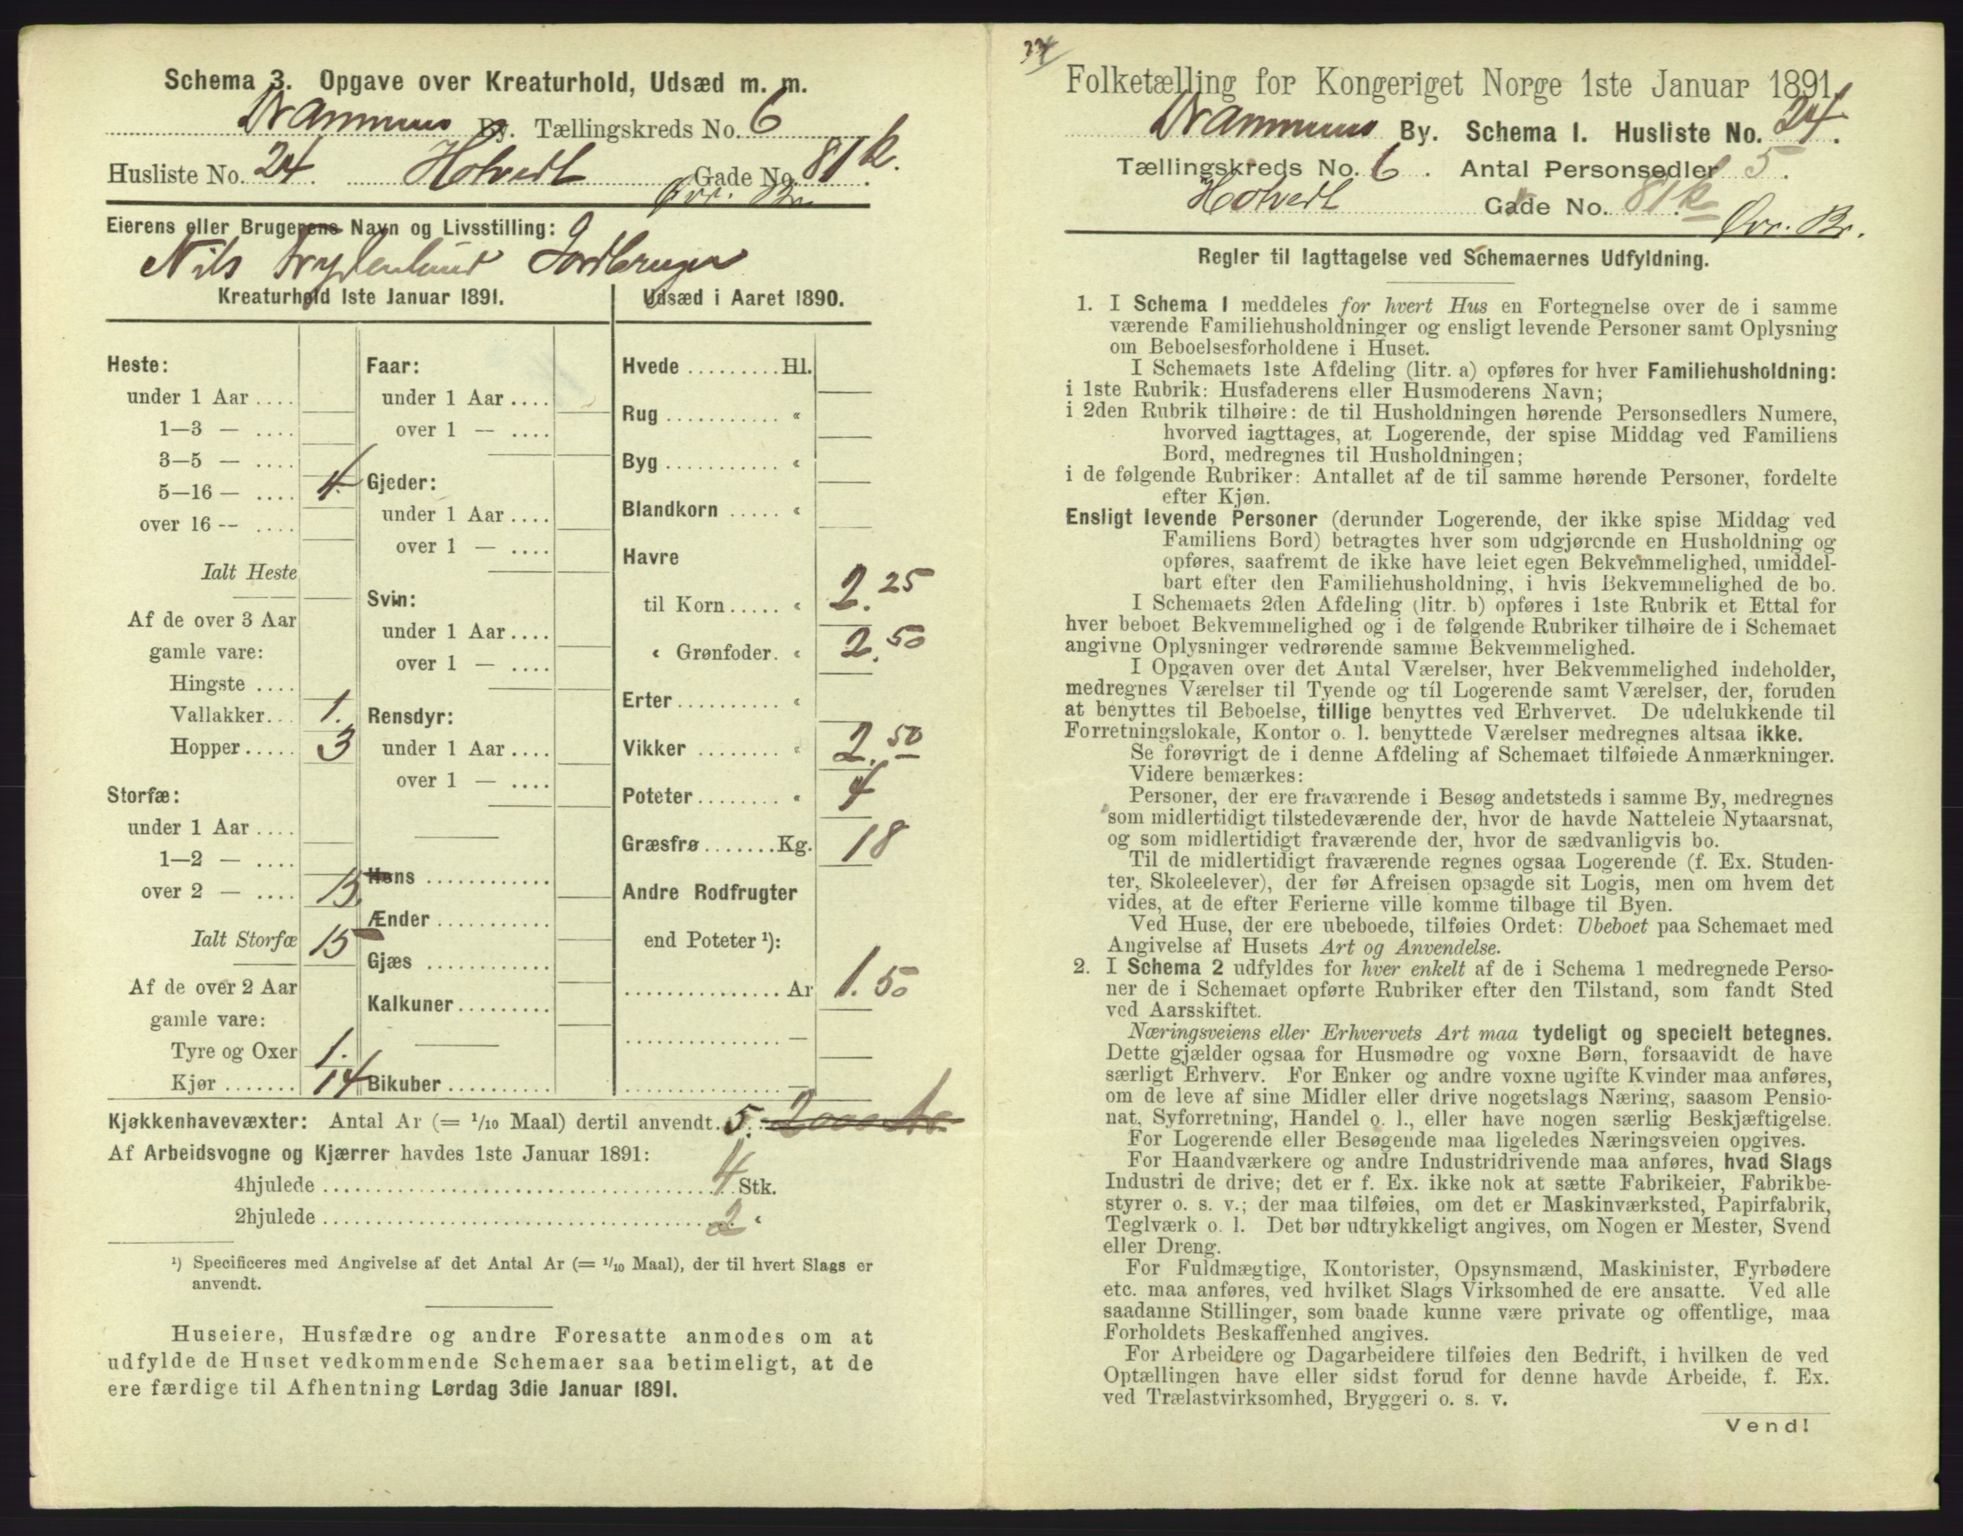 Schema 3. Opgave over Kreaturhold, Udsæd m. m.
Drammens By. Tællingskreds No. 6
Husliste No. 24. Hotvedt Gade No. 81 k.
Øvr. Br.
Eierens eller Brugerens Navn og Livsstilling:
Nils Frydenlund Jordbruger
Kreaturhold 1ste Januar 1891.
Heste:
under 1 Aar ....
1—3 — ....
3—5 — ....
5—16 — .... 4.
over 16 -- ....
Ialt Heste
Af de over 3 Aar
gamle vare:
Hingste ....
Vallakker... 1.
Hopper ..... 3
Storfæ:
under 1 Aar ....
1—2 — ....
over 2 — .... 15.
Ialt Storfæ 15
Af de over 2 Aar
gamle vare:
Tyre og Oxer 1.
Kjør ....... 14
Faar:
under 1 Aar ....
over 1 — ....
Gjeder:
under 1 Aar ....
over 1 — ....
Svin:
under 1 Aar ....
over 1 — ....
Rensdyr:
under 1 Aar ....
over 1 — ....
Høns ............
Ænder ...........
Gjæs ............
Kalkuner .........
Bikuber ..........
Udsæd i Aaret 1890.
Hvede ......... Hl.
Rug ........... «
Byg ........... «
Blandkorn ..... «
Havre
til Korn ..... « 2.25
« Grønfoder. « 2.50
Erter .......... «
Vikker ........ « 2.50
Poteter ........ « 4
Græsfrø ....... Kg. 18
Andre Rodfrugter
end Poteter ¹):
............... Ar 1.50
............... —
............... —
Kjøkkenhavevæxter: Antal Ar (= 1/10 Maal) dertil anvendt. 5.
Af Arbeidsvogne og Kjærrer havdes 1ste Januar 1891:
4hjulede .................... 4 Stk.
2hjulede .................... 2 «
¹) Specificeres med Angivelse af det Antal Ar (= 1/10 Maal), der til hvert Slags er
anvendt.
Huseiere, Husfædre og andre Foresatte anmodes om at
udfylde de Huset vedkommende Schemaer saa betimeligt, at de
ere færdige til Afhentning Lørdag 3die Januar 1891.
Folketælling for Kongeriget Norge 1ste Januar 1891.
Drammens By. Schema I. Husliste No. 24.
Tællingskreds No. 6. Antal Personsedler 5.
Hotvedt Gade No. 81 k
Øvr. Br.
Regler til Iagttagelse ved Schemaernes Udfyldning.
1. I Schema I meddeles for hvert Hus en Fortegnelse over de i samme
værende Familiehusholdninger og ensligt levende Personer samt Oplysning
om Beboelsesforholdene i Huset.
I Schemaets 1ste Afdeling (litr. a) opføres for hver Familiehusholdning:
i 1ste Rubrik: Husfaderens eller Husmoderens Navn;
i 2den Rubrik tilhøire: de til Husholdningen hørende Personsedlers Numere,
hvorved iagttages, at Logerende, der spise Middag ved Familiens
Bord, medregnes til Husholdningen;
i de følgende Rubriker: Antallet af de til samme hørende Personer, fordelte
efter Kjøn.
Ensligt levende Personer (derunder Logerende, der ikke spise Middag ved
Familiens Bord) betragtes hver som udgjørende en Husholdning og
opføres, saafremt de ikke have leiet egen Bekvemmelighed, umiddel-
bart efter den Familiehusholdning, i hvis Bekvemmelighed de bo.
I Schemaets 2den Afdeling (litr. b) opføres i 1ste Rubrik et Ettal for
hver beboet Bekvemmelighed og i de følgende Rubriker tilhøire de i Schemaet
angivne Oplysninger vedrørende samme Bekvemmelighed.
I Opgaven over det Antal Værelser, hver Bekvemmelighed indeholder,
medregnes Værelser til Tyende og til Logerende samt Værelser, der, foruden
at benyttes til Beboelse, tillige benyttes ved Erhvervet. De udelukkende til
Forretningslokale, Kontor o. l. benyttede Værelser medregnes altsaa ikke.
Se forøvrigt de i denne Afdeling af Schemaet tilføiede Anmærkninger.
Videre bemærkes:
Personer, der ere fraværende i Besøg andetsteds i samme By, medregnes
som midlertidigt tilstedeværende der, hvor de havde Natteleie Nytaarsnat,
og som midlertidigt fraværende der, hvor de sædvanligvis bo.
Til de midlertidigt fraværende regnes ogsaa Logerende (f. Ex. Studen-
ter, Skoleelever), der før Afreisen opsagde sit Logis, men om hvem det
vides, at de efter Ferierne ville komme tilbage til Byen.
Ved Huse, der ere ubeboede, tilføies Ordet: Ubeboet paa Schemaet med
Angivelse af Husets Art og Anvendelse.
2. I Schema 2 udfyldes for hver enkelt af de i Schema 1 medregnede Perso-
ner de i Schemaet opførte Rubriker efter den Tilstand, som fandt Sted
ved Aarsskiftet.
Næringsveiens eller Erhvervets Art maa tydeligt og specielt betegnes.
Dette gjælder ogsaa for Husmødre og voxne Børn, forsaavidt de have
særligt Erhverv. For Enker og andre voxne ugifte Kvinder maa anføres,
om de leve af sine Midler eller drive nogetslags Næring, saasom Pensio-
nat, Syforretning, Handel o. l., eller have nogen særlig Beskjæftigelse.
For Logerende eller Besøgende maa ligeledes Næringsveien opgives.
For Haandværkere og andre Industridrivende maa anføres, hvad Slags
Industri de drive; det er f. Ex. ikke nok at sætte Fabrikeier, Fabrikbe-
styrer o. s. v.; der maa tilføies, om det er Maskinværksted, Papirfabrik,
Teglværk o. l. Det bør udtrykkeligt angives, om Nogen er Mester, Svend
eller Dreng.
For Fuldmægtige, Kontorister, Opsynsmænd, Maskinister, Fyrbødere
etc. maa anføres, ved hvilket Slags Virksomhed de ere ansatte. Ved alle
saadanne Stillinger, som baade kunne være private og offentlige, maa
Forholdets Beskaffenhed angives.
For Arbeidere og Dagarbeidere tilføies den Bedrift, i hvilken de ved
Optællingen have eller sidst forud for denne havde Arbeide, f. Ex.
ved Trælastvirksomhed, Bryggeri o. s. v.
Vend!